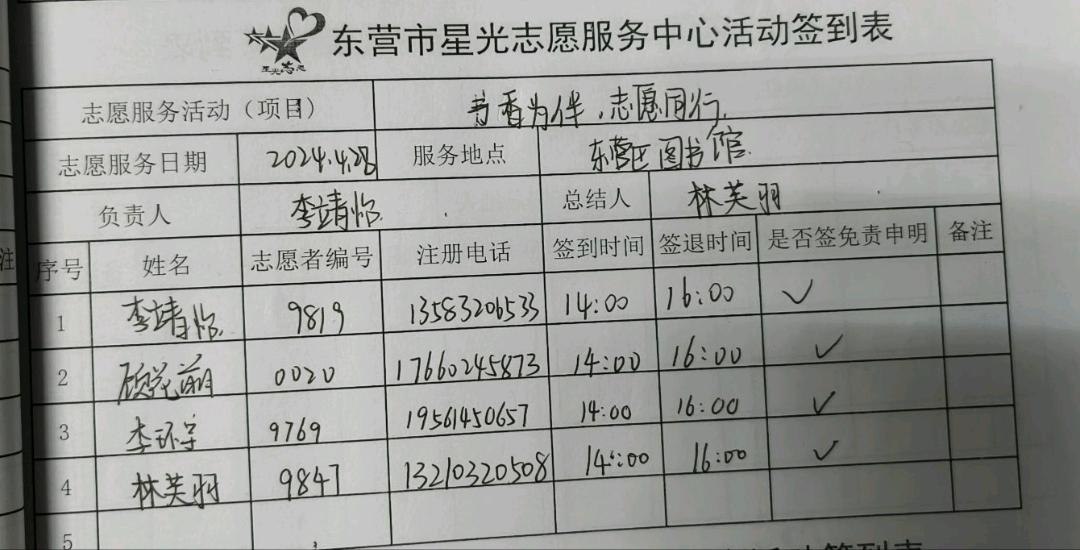 东营市星光志愿服务中心活动签到表
星光志愿
志愿服务活动（项目） 书香为伴，志愿同行
志愿服务日期 2024.4.28 服务地点 东营区图书馆
负责人 李靖怡 总结人 林芙羽
序号 姓名 志愿者编号 注册电话 签到时间 签退时间 是否签免责申明 备注
1 李靖怡 9819 13583206533 14:00 16:00 ✓
2 0020 17660245873 14:00 16:00 ✓
3 李环宇 9769 19561450657 14:00 16:00 ✓
4 林芙羽 9847 13210320508 14:00 16:00 ✓
5